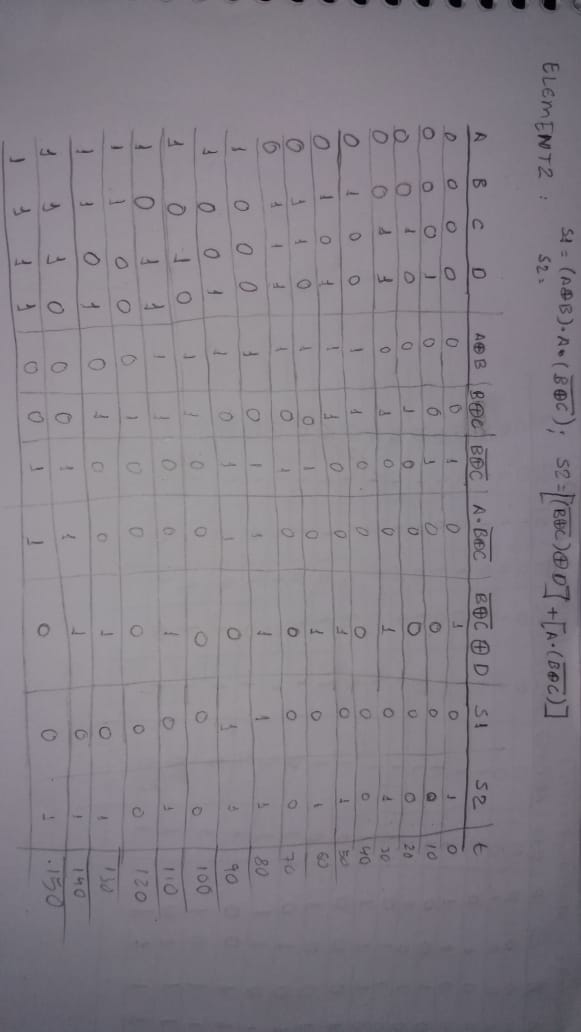 ELEMENT2 : S1 = (A⊕B)·A·(B̅⊕̅C̅); S2 = [(B̅⊕̅C̅)⊕D] + [A·(B̅⊕̅C̅)]
S2 =
A B C D A⊕B B⊕C B̅⊕̅C̅ A·B̅⊕̅C̅ B̅⊕̅C̅⊕D S1 S2 t
0 0 0 0 0 0 1 0 1 0 1 0
0 0 0 1 0 0 1 0 0 0 0 10
0 0 1 0 0 1 0 0 0 0 0 20
0 0 1 1 0 1 0 0 1 0 1 30
0 1 0 0 1 1 0 0 0 0 0 40
0 1 0 1 1 1 0 0 1 0 1 50
0 1 1 0 1 0 1 0 1 0 1 60
0 1 1 1 1 0 1 0 0 0 0 70
1 0 0 0 1 0 1 1 1 1 1 80
1 0 0 1 1 0 1 1 0 1 1 90
1 0 1 0 1 1 0 0 0 0 0 100
1 0 1 1 1 1 0 0 1 0 1 110
1 1 0 0 0 1 0 0 0 0 0 120
1 1 0 1 0 1 0 0 1 0 1 130
1 1 1 0 0 0 1 1 1 0 1 140
1 1 1 1 0 0 1 1 0 0 1 .150